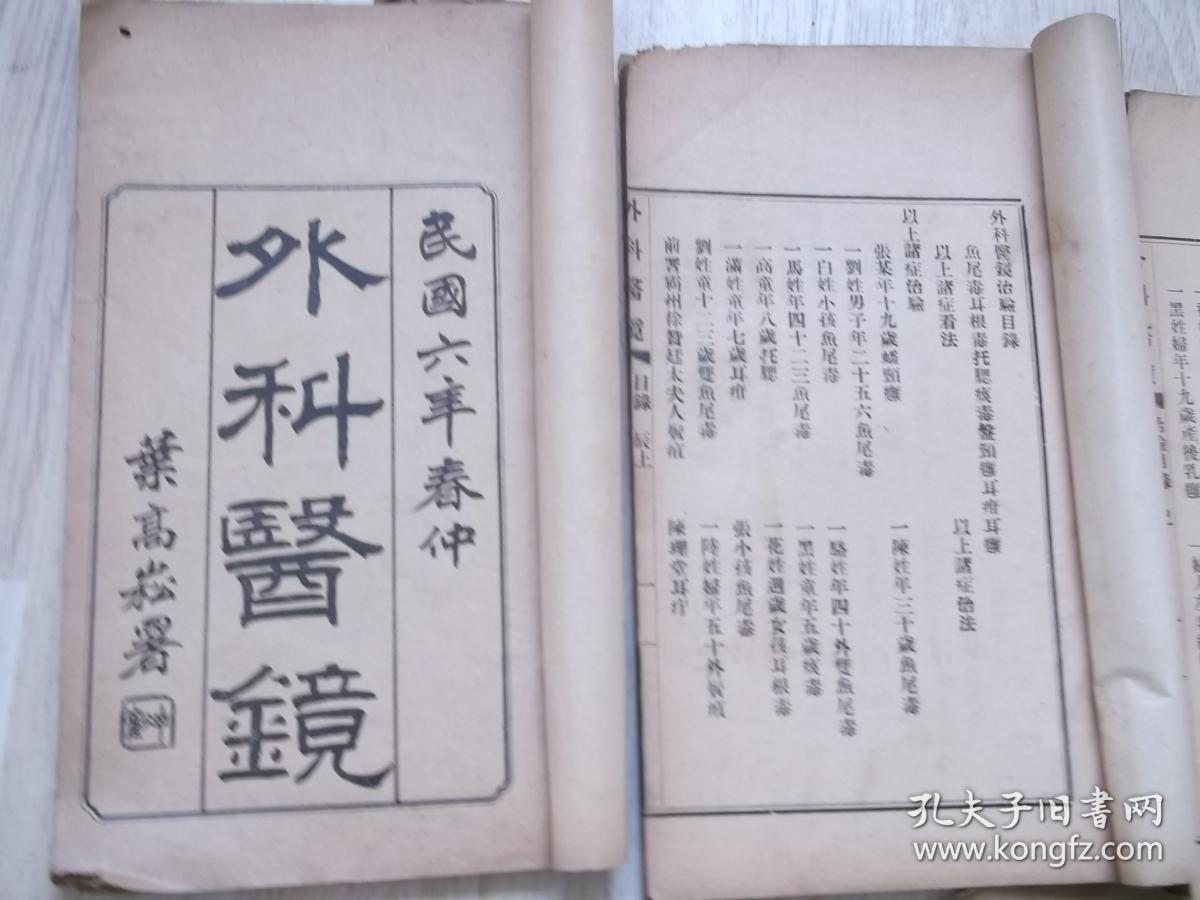 民國六年春仲
外科醫鏡
葉高崧署
外科醫鏡治驗目錄
魚尾毒耳根毒托腮痰毒盤頸癰耳疳耳癰
以上諸症看法
以上諸症治法
以上諸症治驗
張某年十九歲蟠頸癰
一陳姓年三十歲魚尾毒
一劉姓男子年二十五六魚尾毒
一駱姓年四十外雙魚尾毒
一白姓小孩魚尾毒
一黑姓童年五歲痰毒
一馬姓年四十二三魚尾毒
一花姓週歲女孩耳根毒
一高童年八歲托腮
張小孩魚尾毒
一滿姓童年七歲耳疳
一陸姓婦年五十外
劉姓童十二三歲雙魚尾毒
陳理堂耳疔
前署霸州徐贊廷太夫人
外科醫鏡
目錄
辰上
一黑姓婦年十九歲產後乳癰
孔夫子旧书网
www.kongfz.com